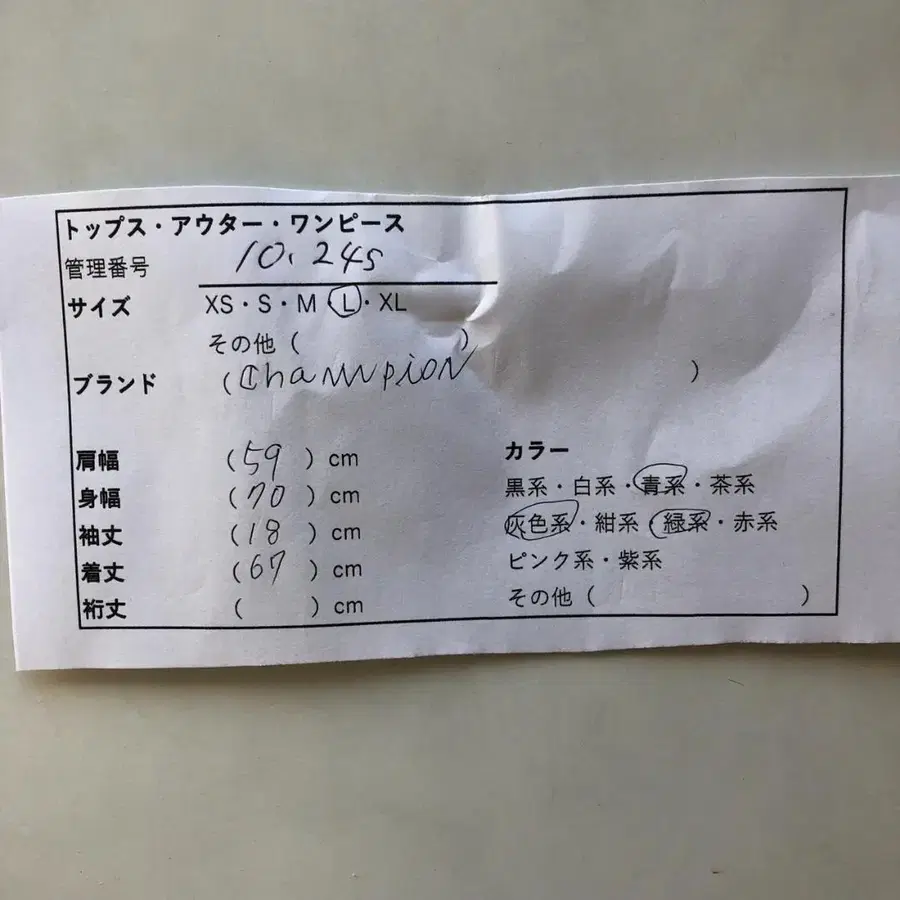 トップス・アウター・ワンピース
管理番号 10.24s
サイズ XS・S・M・L・XL
その他( )
ブランド (Champion )
肩幅 (59 )cm
身幅 (70 )cm
袖丈 (18 )cm
着丈 (67 )cm
裄丈 ( )cm
カラー
黒系・白系・青系・茶系
灰色系・紺系・緑系・赤系
ピンク系・紫系
その他( )